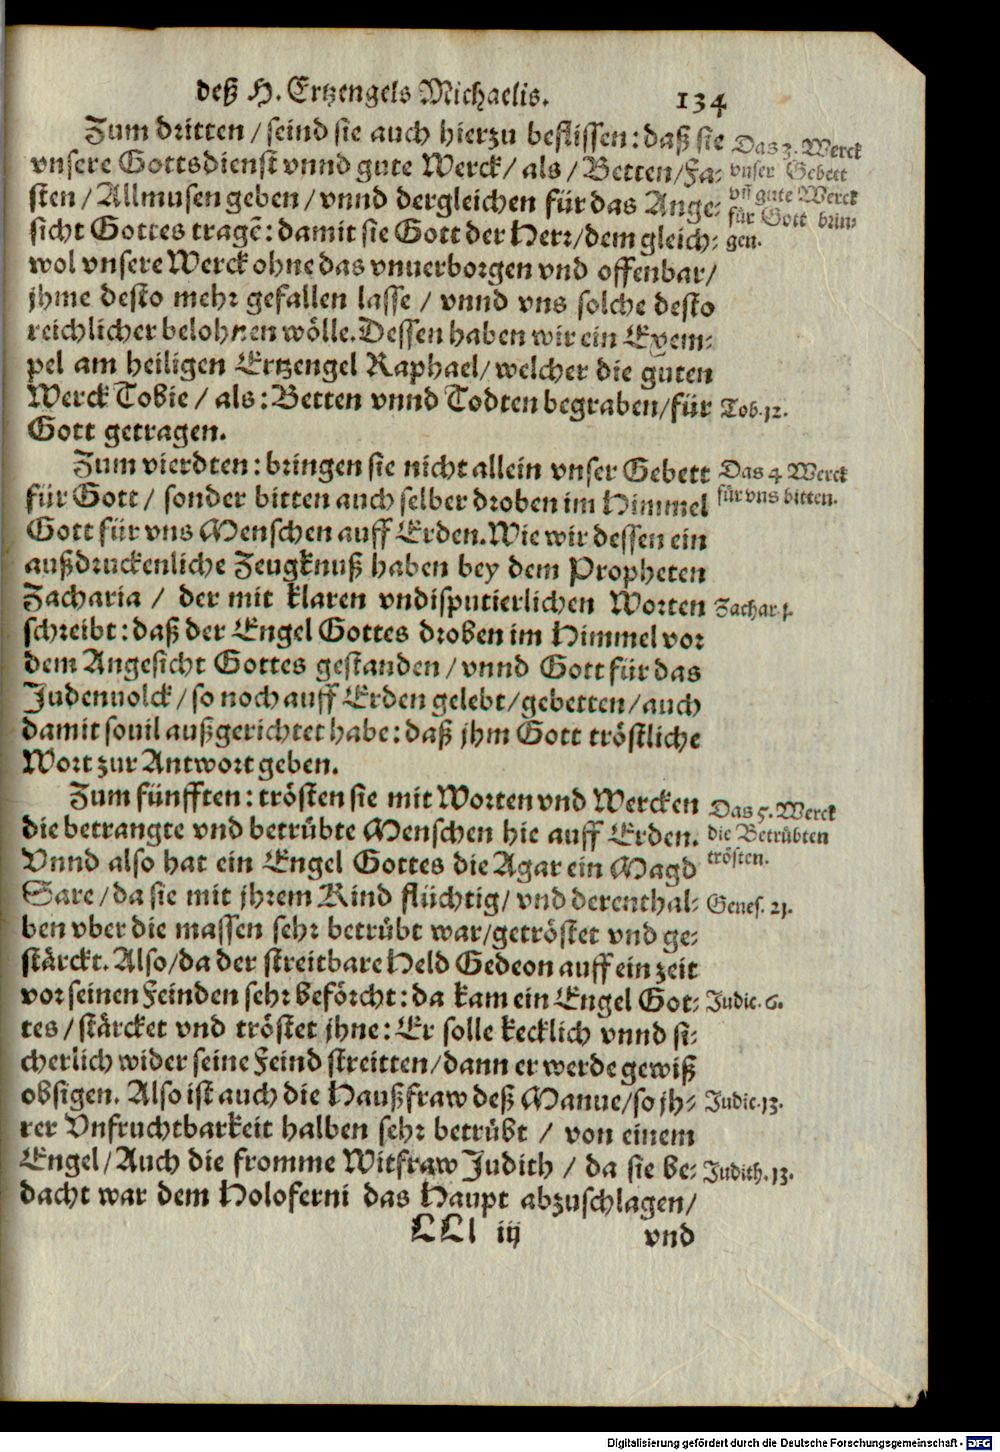 deß H. Ertzengels Michaelis.
134
Zum dritten / seind sie auch hierzu beflissen: daß sie
vnsere Gottsdienst vnnd gute Werck / als / Betten / Fa-
sten / Allmusen geben / vnnd dergleichen für das Ange-
sicht Gottes tragẽ: damit sie Gott der Herr / dem gleich-
wol vnsere Werck ohne das vnuerborgen vnd offenbar /
jhme desto mehr gefallen lasse / vnnd vns solche desto
reichlicher belohnen wölle. Dessen haben wir ein Exem-
pel am heiligen Ertzengel Raphael / welcher die guten
Werck Tobie / als: Betten vnnd Todten begraben / für
Gott getragen.
Das 3. Werck
vnser Gebett
vñ gute Werck
für Gott brin-
gen.
Tob. 12.
Zum vierdten: bringen sie nicht allein vnser Gebett
für Gott / sonder bitten auch selber droben im Himmel
Gott für vns Menschen auff Erden. Wie wir dessen ein
außdruckenliche Zeugknuß haben bey dem Propheten
Zacharia / der mit klaren vndisputierlichen Worten
schreibt: daß der Engel Gottes droben im Himmel vor
dem Angesicht Gottes gestanden / vnnd Gott für das
Judenuolck / so noch auff Erden gelebt / gebetten / auch
damit souil außgerichtet habe: daß jhm Gott tröstliche
Wort zur Antwort geben.
Das 4. Werck
für vns bitten.
Zachar. 1.
Zum fünfften: trösten sie mit Worten vnd Wercken
die betrangte vnd betrübte Menschen hie auff Erden.
Vnnd also hat ein Engel Gottes die Agar ein Magd
Sare / da sie mit jhrem Kind flüchtig / vnd derenthal-
ben vber die massen sehr betrübt war / getröstet vnd ge-
stärckt. Also / da der streitbare Held Gedeon auff ein zeit
vor seinen Feinden sehr beförcht: da kam ein Engel Got-
tes / stärcket vnd tröstet jhne: Er solle kecklich vnnd si-
cherlich wider seine Feind streitten / dann er werde gewiß
obsigen. Also ist auch die Haußfraw deß Manue / so jh-
rer Vnfruchtbarkeit halben sehr betrübt / von einem
Engel / Auch die fromme Witfraw Judith / da sie be-
dacht war dem Holoferni das Haupt abzuschlagen /
Das 5. Werck
die Betrübten
trösten.
Genes. 21.
Judic. 6.
Judic. 13.
Judith. 13.
LLl iij
vnd
Digitalisierung gefördert durch die Deutsche Forschungsgemeinschaft - DFG